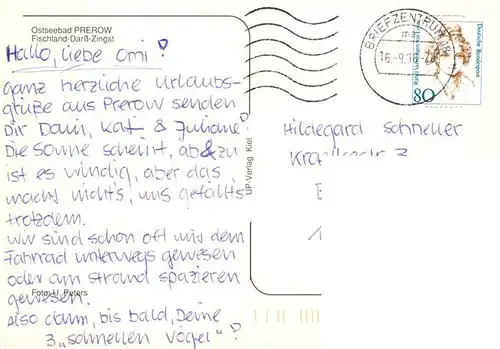 Ostseebad PREROW
Fischland-Darß-Zingst
Hallo, liebe Omi!
ganz herzliche Urlaubs-
grüße aus Prerow senden
Dir Dani, Kati & Juliane!
Die Sonne scheint, ab & zu
ist es windig, aber das
macht nichts, uns gefällts
trotzdem.
Wir sind schon oft mit dem
Fahrrad unterwegs gewesen
oder am Strand spazieren
gewesen.
Foto: U. Peters
Also dann, bis bald, Deine
3 „schnellen Vögel“!
UP-Verlag Kiel
BRIEFZENTRUM 18
Deutsche Bundespost
80
Hildegard Schneller